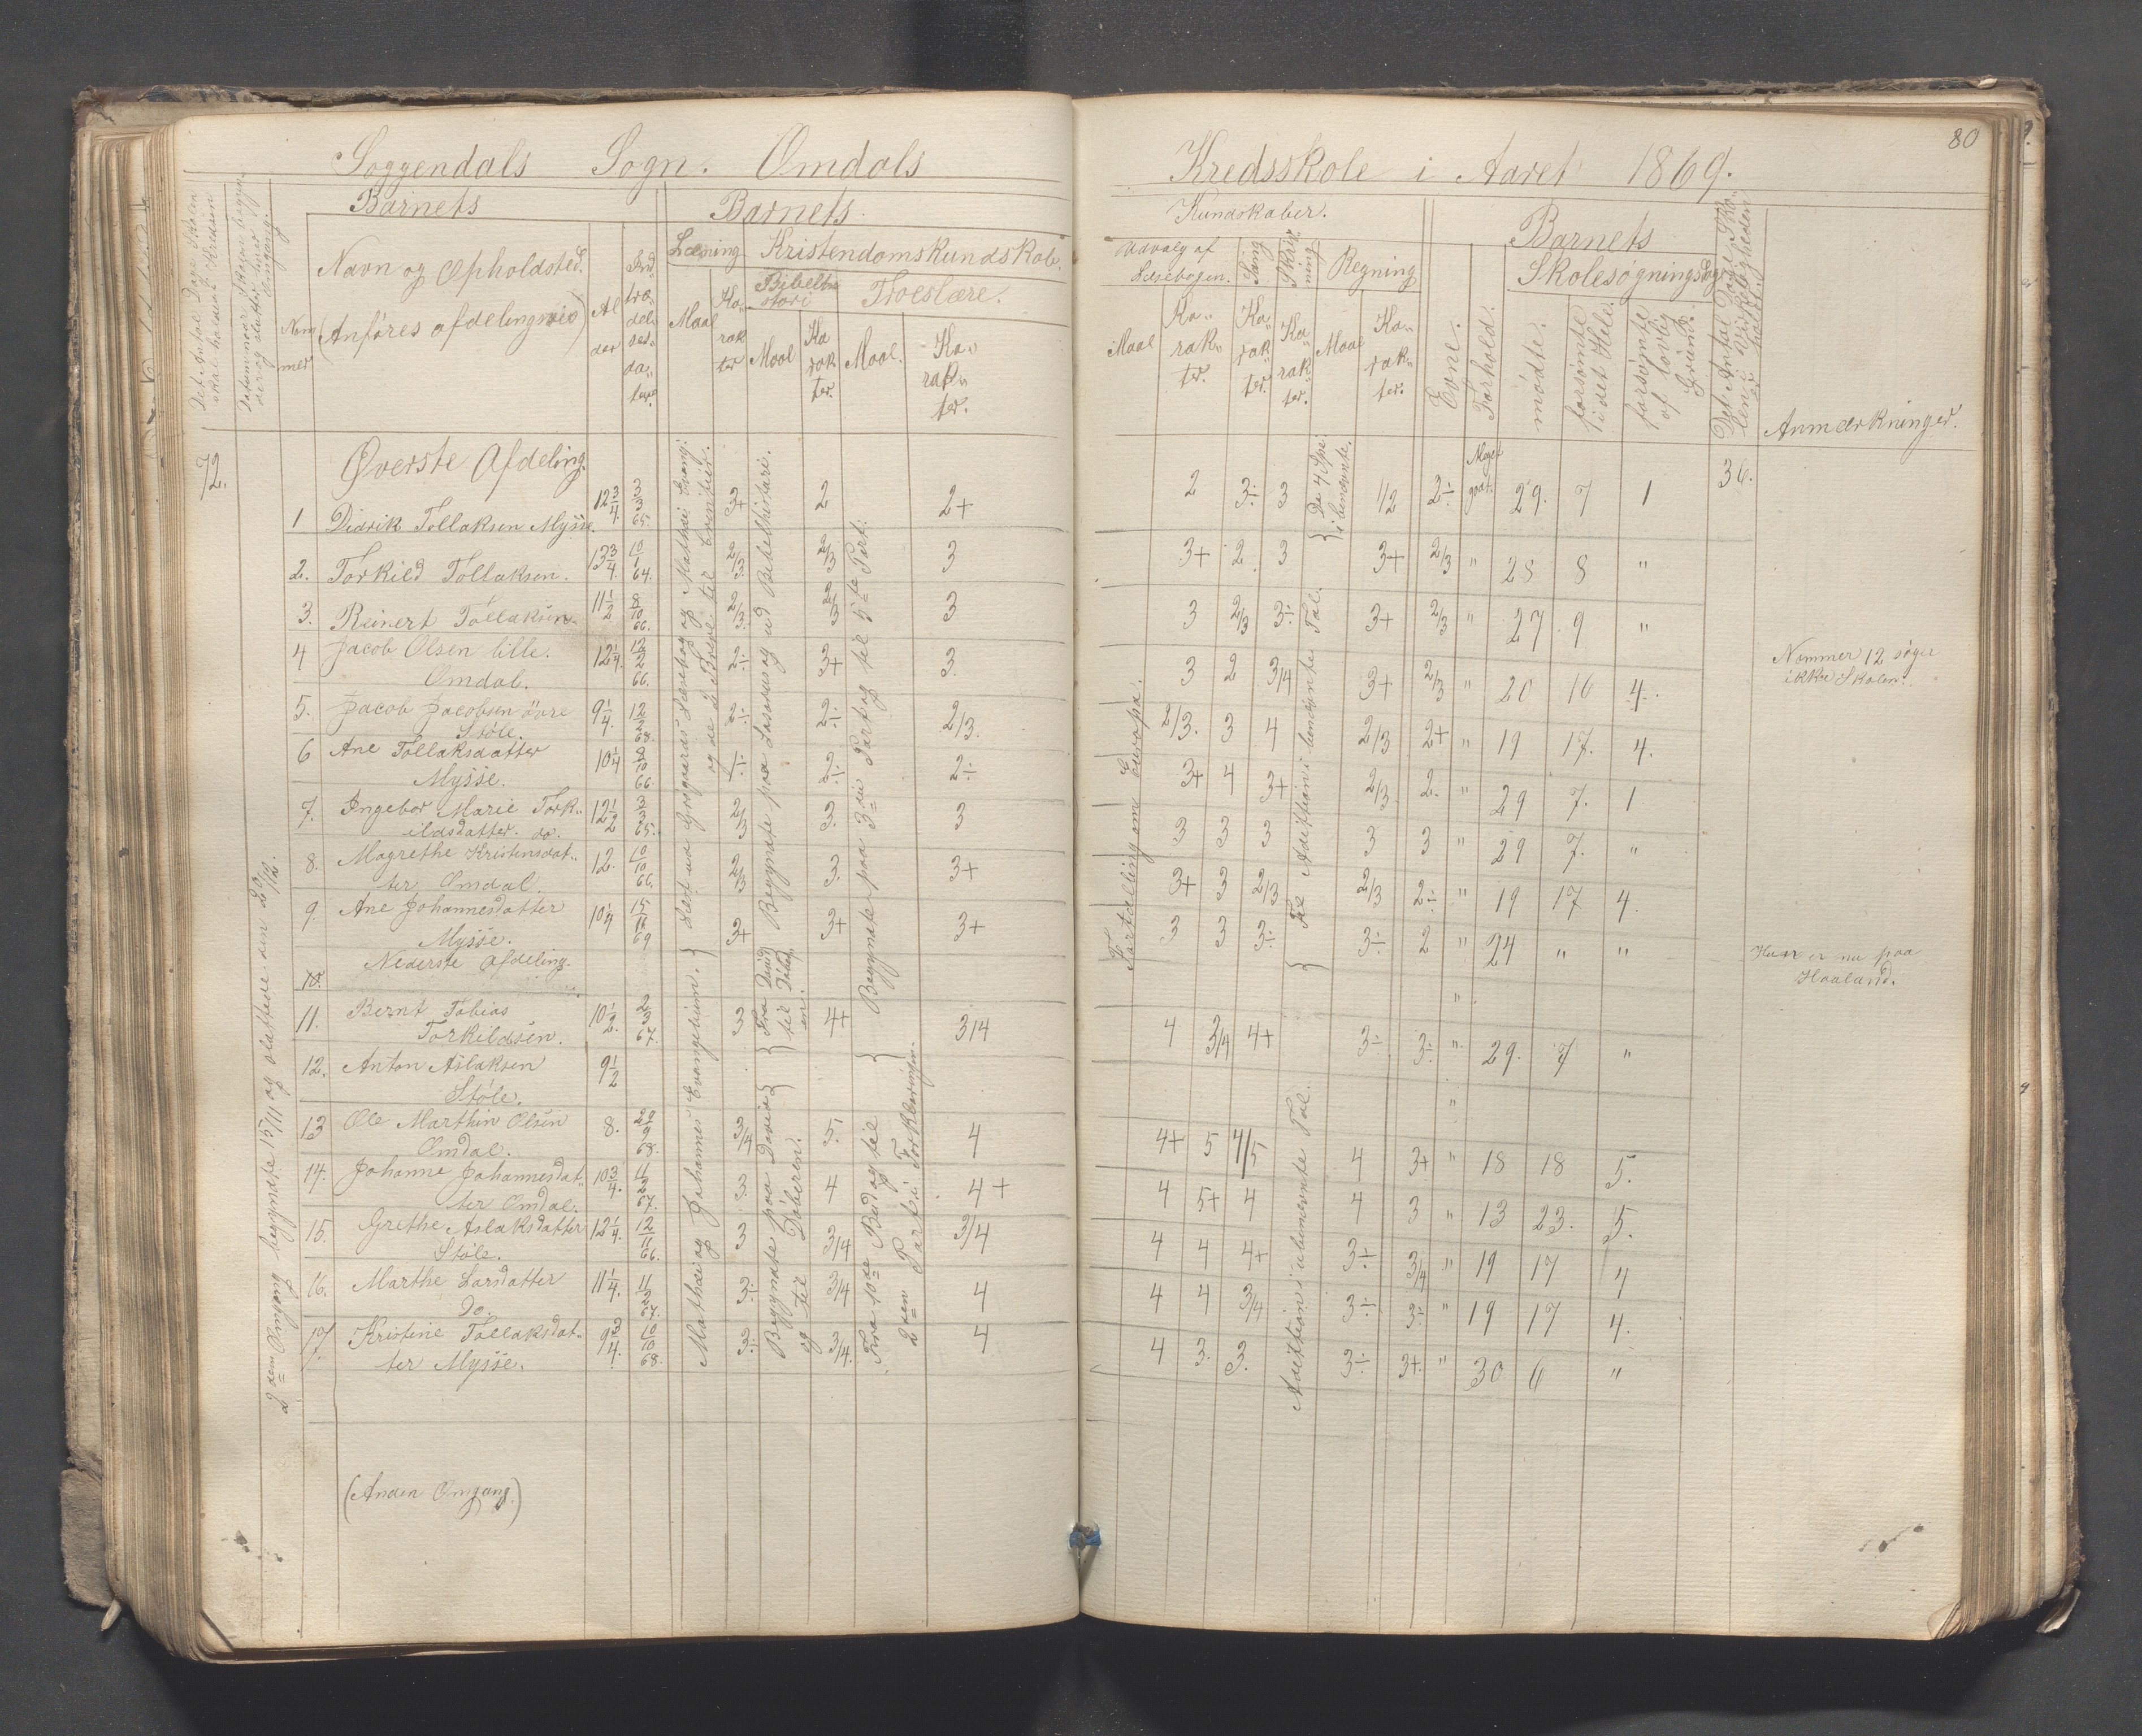 80
Soggendals Sogn. Omdals Kredsskole i Aaret 1869.
Det Antal Dage Skolen skal holdes i Kredsen
Datum naar Skolen begynder og slutter hver Omgang.
Barnets
Nummer
Navn og Opholdsted. (Anføres afdelingsvis)
Alder
Indtrædelsesdatum.
Barnets
Læsning
Maal
Karakter
Kristendomskundskab.
Bibelhistori
Maal
Karakter.
Troeslære.
Maal.
Karakter.
Kundskaber.
Udvalg af Læsebogen.
Maal
Karakter.
Sang
Karakter.
Skrivning
Karakter.
Regning
Maal
Karakter.
Barnets
Evne.
Forhold.
Skolesøgningsdage
mødte.
forsømte i det Hele.
forsømte af lovlig Grund.
Det Antal Dage Skolen i Virkeligheden er holdt.
Anmærkninger.
72.
Øverste Afdeling.
36.
1 Didrik Tollaksen Mysse. 12 3/4 3/3 65. 3+ 2 2+ 2 3÷ 3 1/2 2÷ Meget godt. 29. 7 1
2. Torkild Tollaksen. 13 3/4. 10/1 64. 2/3 2/3 3 3+ 2. 3 3+ 2/3 " 28 8 "
3. Reinert Tollaksen. 11 1/2 8/10 66. 2/3 2/3 3 3 2/3 3÷ 3+ 2/3 " 27 9 "
4 Jacob Olsen lille.
Omdal. 12 1/4. 12/2 66. 2÷ 3+ 3. 3 2 3/4 3+ 2/3 " 20 16 4.
5. Jacob Jacobsen øvre
Støle. 9 1/4. 12/2 68. 2÷ 2÷ 2/3. 2/3. 3 4 2/3 2+ " 19 17. 4.
6 Ane Tollaksdatter
Mysse. 10 1/4 8/10 66. 1÷ 2÷ 2÷ 3+ 4 3+ 2/3 2. " 29 7. 1
7. Ingebor Marie Tork-
ildsdatter. do. 12 1/2 3/3 65. 2/3 3. 3 3 3 3 3 3 " 29 7. "
8. Magrethe Kristensdat-
ter Omdal. 12. 10/10 66. 2/3 3. 3+ 3+ 3 2/3 2/3 2÷ " 19 17 4.
9. Ane Johannesdatter
Mysse. 10 1/4 15/11 69 3+ 3+ 3+ 3 3 3÷ 3÷ 2 " 24 " "
Nederste Afdeling.
10.
11. Bernt Tobias
Torkildsen. 10 1/2. 2/3 67. 3 4+ 3/4 4 3/4 4+ 3÷ 3÷ " 29. 7 "
12. Anton Aslaksen
Støle. 9 1/2
13 Ole Marthin Olsen
Omdal. 8. 29/9 68. 3/4 5. 4 4+ 5 4/5 4 3+ " 18 18 5.
14. Johanne Johannesdat-
ter Omdal. 10 3/4. 11/2 67. 3. 4 4+ 4 5+ 4 4 3 " 13 23. 5.
15. Grethe Aslaksdatter
Støle. 12 1/4. 12/11 66. 3 3/4 3/4 4 4 4+ 3÷ 3/4 " 19 17 4
16. Marthe Larsdatter
Do. 11 1/4. 11/2 67. 3÷ 3/4 4 4 4 3/4 3÷ 3÷ " 19 17 4.
17 Kristine Tollaksdat-
ter Mysse. 9 3/4. 10/10 68. 3÷ 3/4. 4 4 3. 3. 3÷ 3+. " 30 6 "
(Anden Omgang.)
2den Omgang begyndte 15/11 og sluttede den 20/12.
og Mathæi Evangelium.
Mathæi og Johannes Evangelium.
Begyndte paa og ud Bibelhistori.
Fra David til Døberen.
Begyndte paa David og til Døberen.
Begyndte paa 3die Part og til 5te Part.
Fra 10de Bud og til 2den Part i Forklaringen.
Fortælling om Europa.
De 4 Spe. i benævnte.
Til Addition i benævnte Tal.
Addition i ubenævnte Tal.
Nummer 12 søger
ikke Skolen.
Hun er nu paa
Haaland.